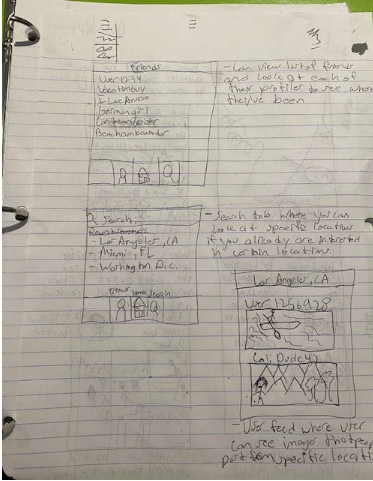 Friends
User1234
Vacationguy
I Love Aruba
Germangirl
Beachambassador
- Can view list of friends
and look at each of
their profiles to see where
they've been
Search:
- Los Angeles, CA
- Miami, FL
- Washington D.C.
Home Search
- Search tab where you can
look at specific locations
if you already are interested
in certain locations.
Los Angeles, CA
User 1256928
Cali Dude42
- User feed where user
can see images that people
post from specific locati